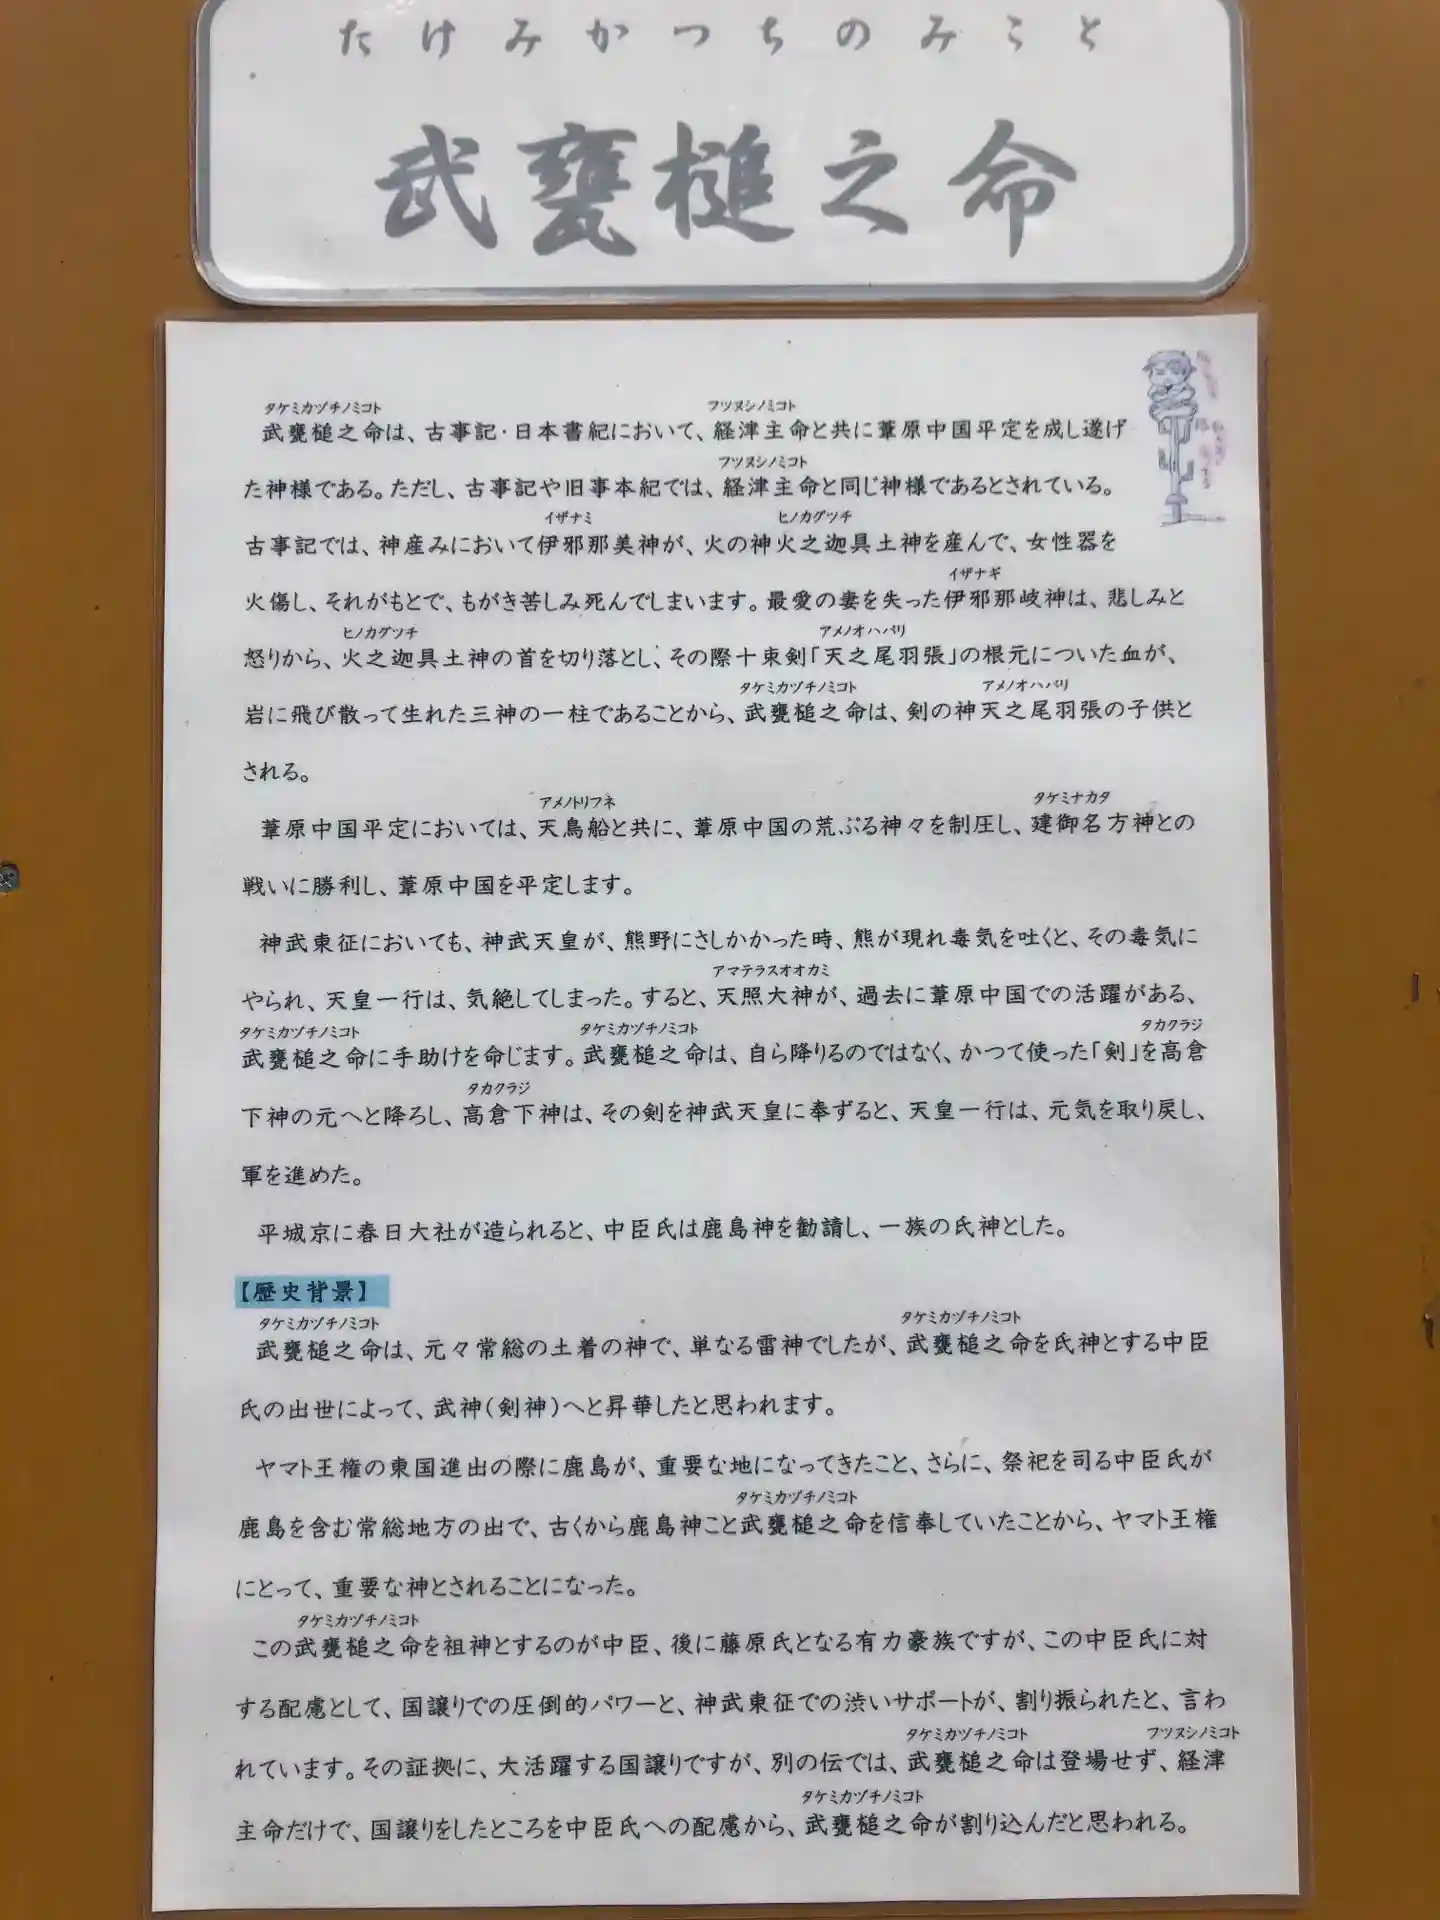 たけみかつちのみこと
武甕槌之命
タケミカヅチノミコト フツヌシノミコト
武甕槌之命は、古事記・日本書紀において、経津主命と共に葦原中国平定を成し遂げ
フツヌシノミコト
た神様である。ただし、古事記や旧事本紀では、経津主命と同じ神様であるとされている。
イザナミ ヒノカグツチ
古事記では、神産みにおいて伊邪那美神が、火の神火之迦具土神を産んで、女性器を
イザナギ
火傷し、それがもとで、もがき苦しみ死んでしまいます。最愛の妻を失った伊邪那岐神は、悲しみと
ヒノカグツチ アメノオハバリ
怒りから、火之迦具土神の首を切り落とし、その際十束剣「天之尾羽張」の根元についた血が、
タケミカヅチノミコト アメノオハバリ
岩に飛び散って生れた三神の一柱であることから、武甕槌之命は、剣の神天之尾羽張の子供と
される。
アメノトリフネ タケミナカタ
葦原中国平定においては、天鳥船と共に、葦原中国の荒ぶる神々を制圧し、建御名方神との
戦いに勝利し、葦原中国を平定します。
神武東征においても、神武天皇が、熊野にさしかかった時、熊が現れ毒気を吐くと、その毒気に
アマテラスオオカミ
やられ、天皇一行は、気絶してしまった。すると、天照大神が、過去に葦原中国での活躍がある、
タケミカヅチノミコト タケミカヅチノミコト タカクラジ
武甕槌之命に手助けを命じます。武甕槌之命は、自ら降りるのではなく、かつて使った「剣」を高倉
タカクラジ
下神の元へと降ろし、高倉下神は、その剣を神武天皇に奉ずると、天皇一行は、元気を取り戻し、
軍を進めた。
平城京に春日大社が造られると、中臣氏は鹿島神を勧請し、一族の氏神とした。
【歴史背景】
タケミカヅチノミコト タケミカヅチノミコト
武甕槌之命は、元々常総の土着の神で、単なる雷神でしたが、武甕槌之命を氏神とする中臣
氏の出世によって、武神(剣神)へと昇華したと思われます。
ヤマト王権の東国進出の際に鹿島が、重要な地になってきたこと、さらに、祭祀を司る中臣氏が
タケミカヅチノミコト
鹿島を含む常総地方の出で、古くから鹿島神こと武甕槌之命を信奉していたことから、ヤマト王権
にとって、重要な神とされることになった。
タケミカヅチノミコト
この武甕槌之命を祖神とするのが中臣、後に藤原氏となる有力豪族ですが、この中臣氏に対
する配慮として、国譲りでの圧倒的パワーと、神武東征での渋いサポートが、割り振られたと、言わ
タケミカヅチノミコト フツヌシノミコト
れています。その証拠に、大活躍する国譲りですが、別の伝では、武甕槌之命は登場せず、経津
タケミカヅチノミコト
主命だけで、国譲りをしたところを中臣氏への配慮から、武甕槌之命が割り込んだと思われる。